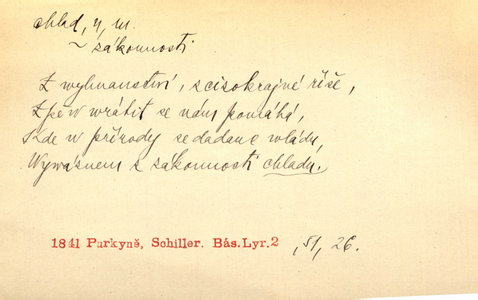 chlad, u, m.
~ zákonnosti
Z wyhnanství, z cizokrajné říše,
Zpěw wrátit se nám pomáhá,
Kde w přírody se dadauc wládu,
Wywáznem z zákonnosti chladu.
1841 Purkyně, Schiller. Bás.Lyr.2 , 51, 26.